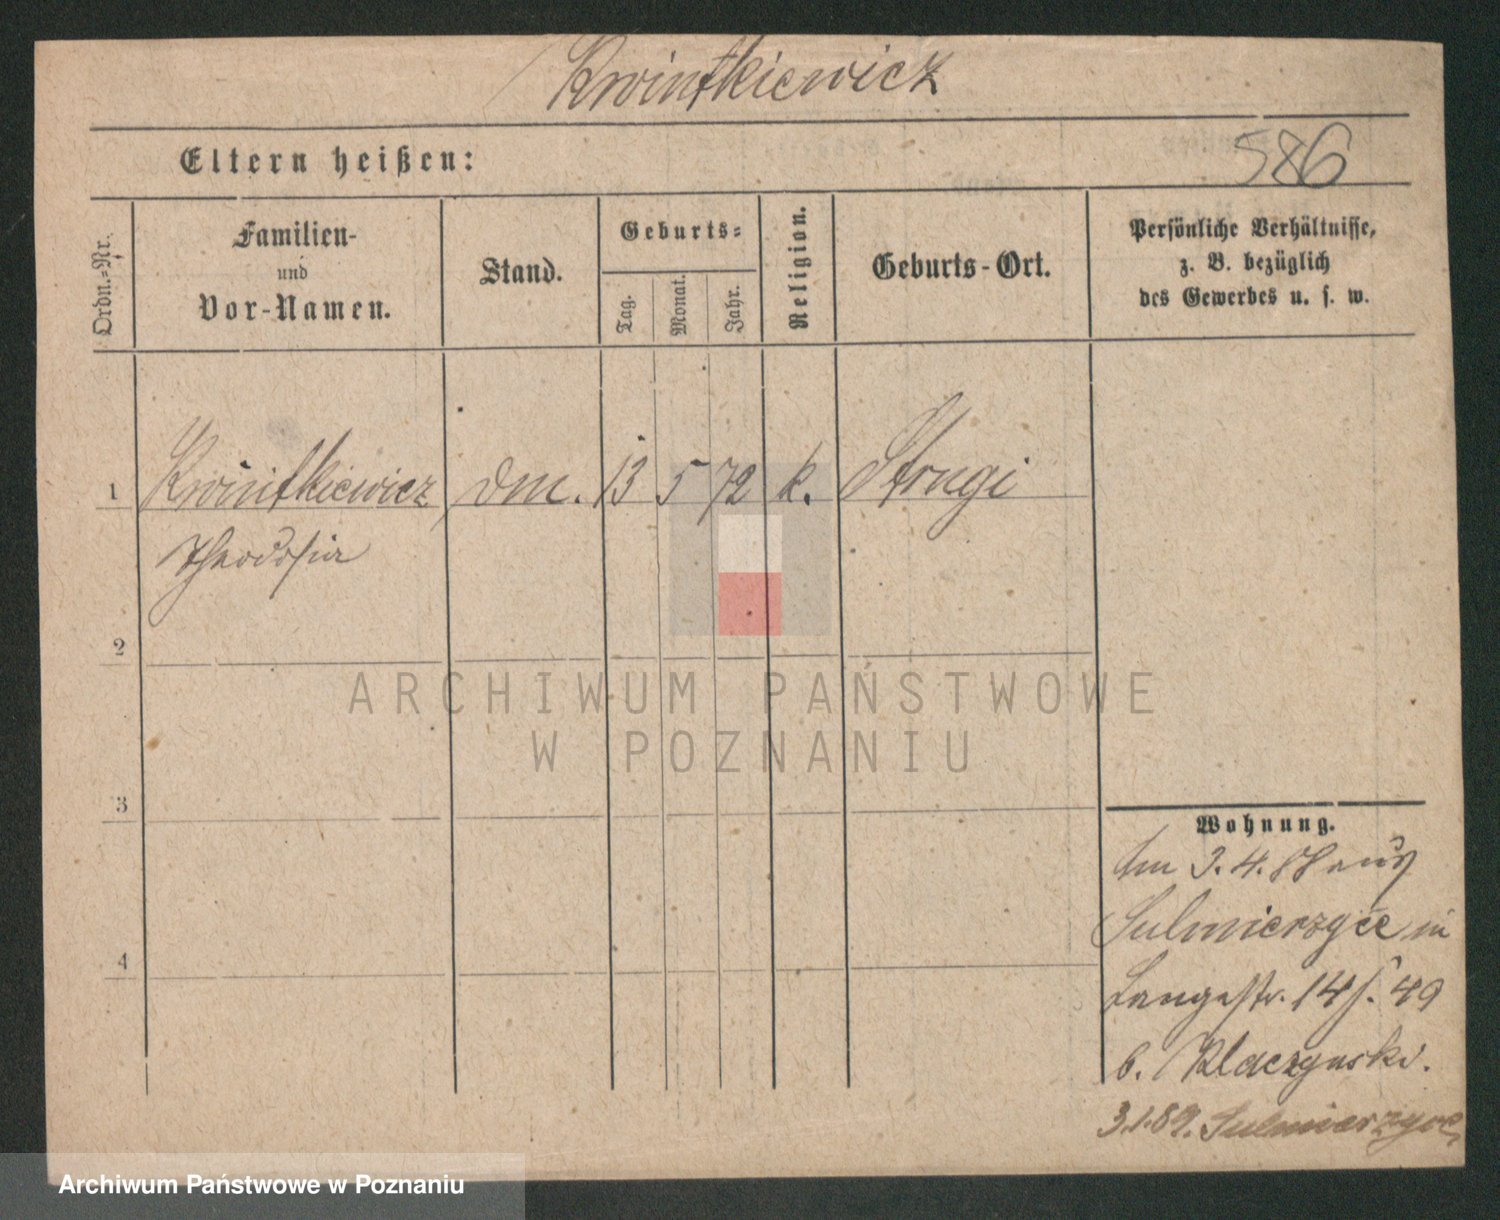 Kwintkiewicz
Eltern heißen:
586
Ordn.-Nr.
Familien-
und
Vor-Namen.
Stand.
Geburts-
Tag.
Monat.
Jahr.
Religion.
Geburts-Ort.
Persönliche Verhältnisse,
z. B. bezüglich
des Gewerbes u. s. w.
1 Kwintkiewicz dm. 13 5 72 k. Strugi
Theodosia
2
3
4
Wohnung.
Am 3.4.88 aus
Sulmierzyce in
Langestr. 14/. 49
b. Klaczynski.
3.1.89. Sulmierzyce
ARCHIWUM PAŃSTWOWE
W POZNANIU
Archiwum Państwowe w Poznaniu